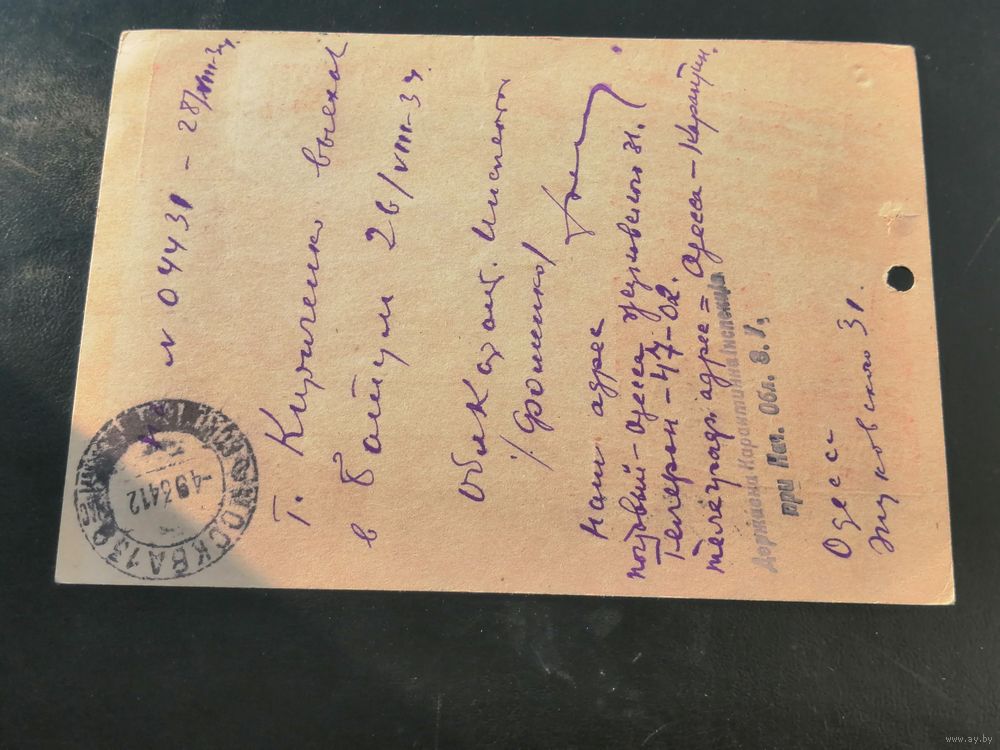 № 04431 - 28/VIII-34
Т. Кириченко выехал
в Батум 28/VIII-34.
Обл Карант. Инспект
/Фоменко/
Наш адрес
почтовый - Одесса Жуковского 31.
Телефон - 47-02.
телеграф. адрес = Одесса - Карантин.
Державна Карантинна Інспекція
при Нач. Обл. З. У.
Одесса
Жуковского 31.
МОСКВА 13
-4.9.34 12
www.ay.by